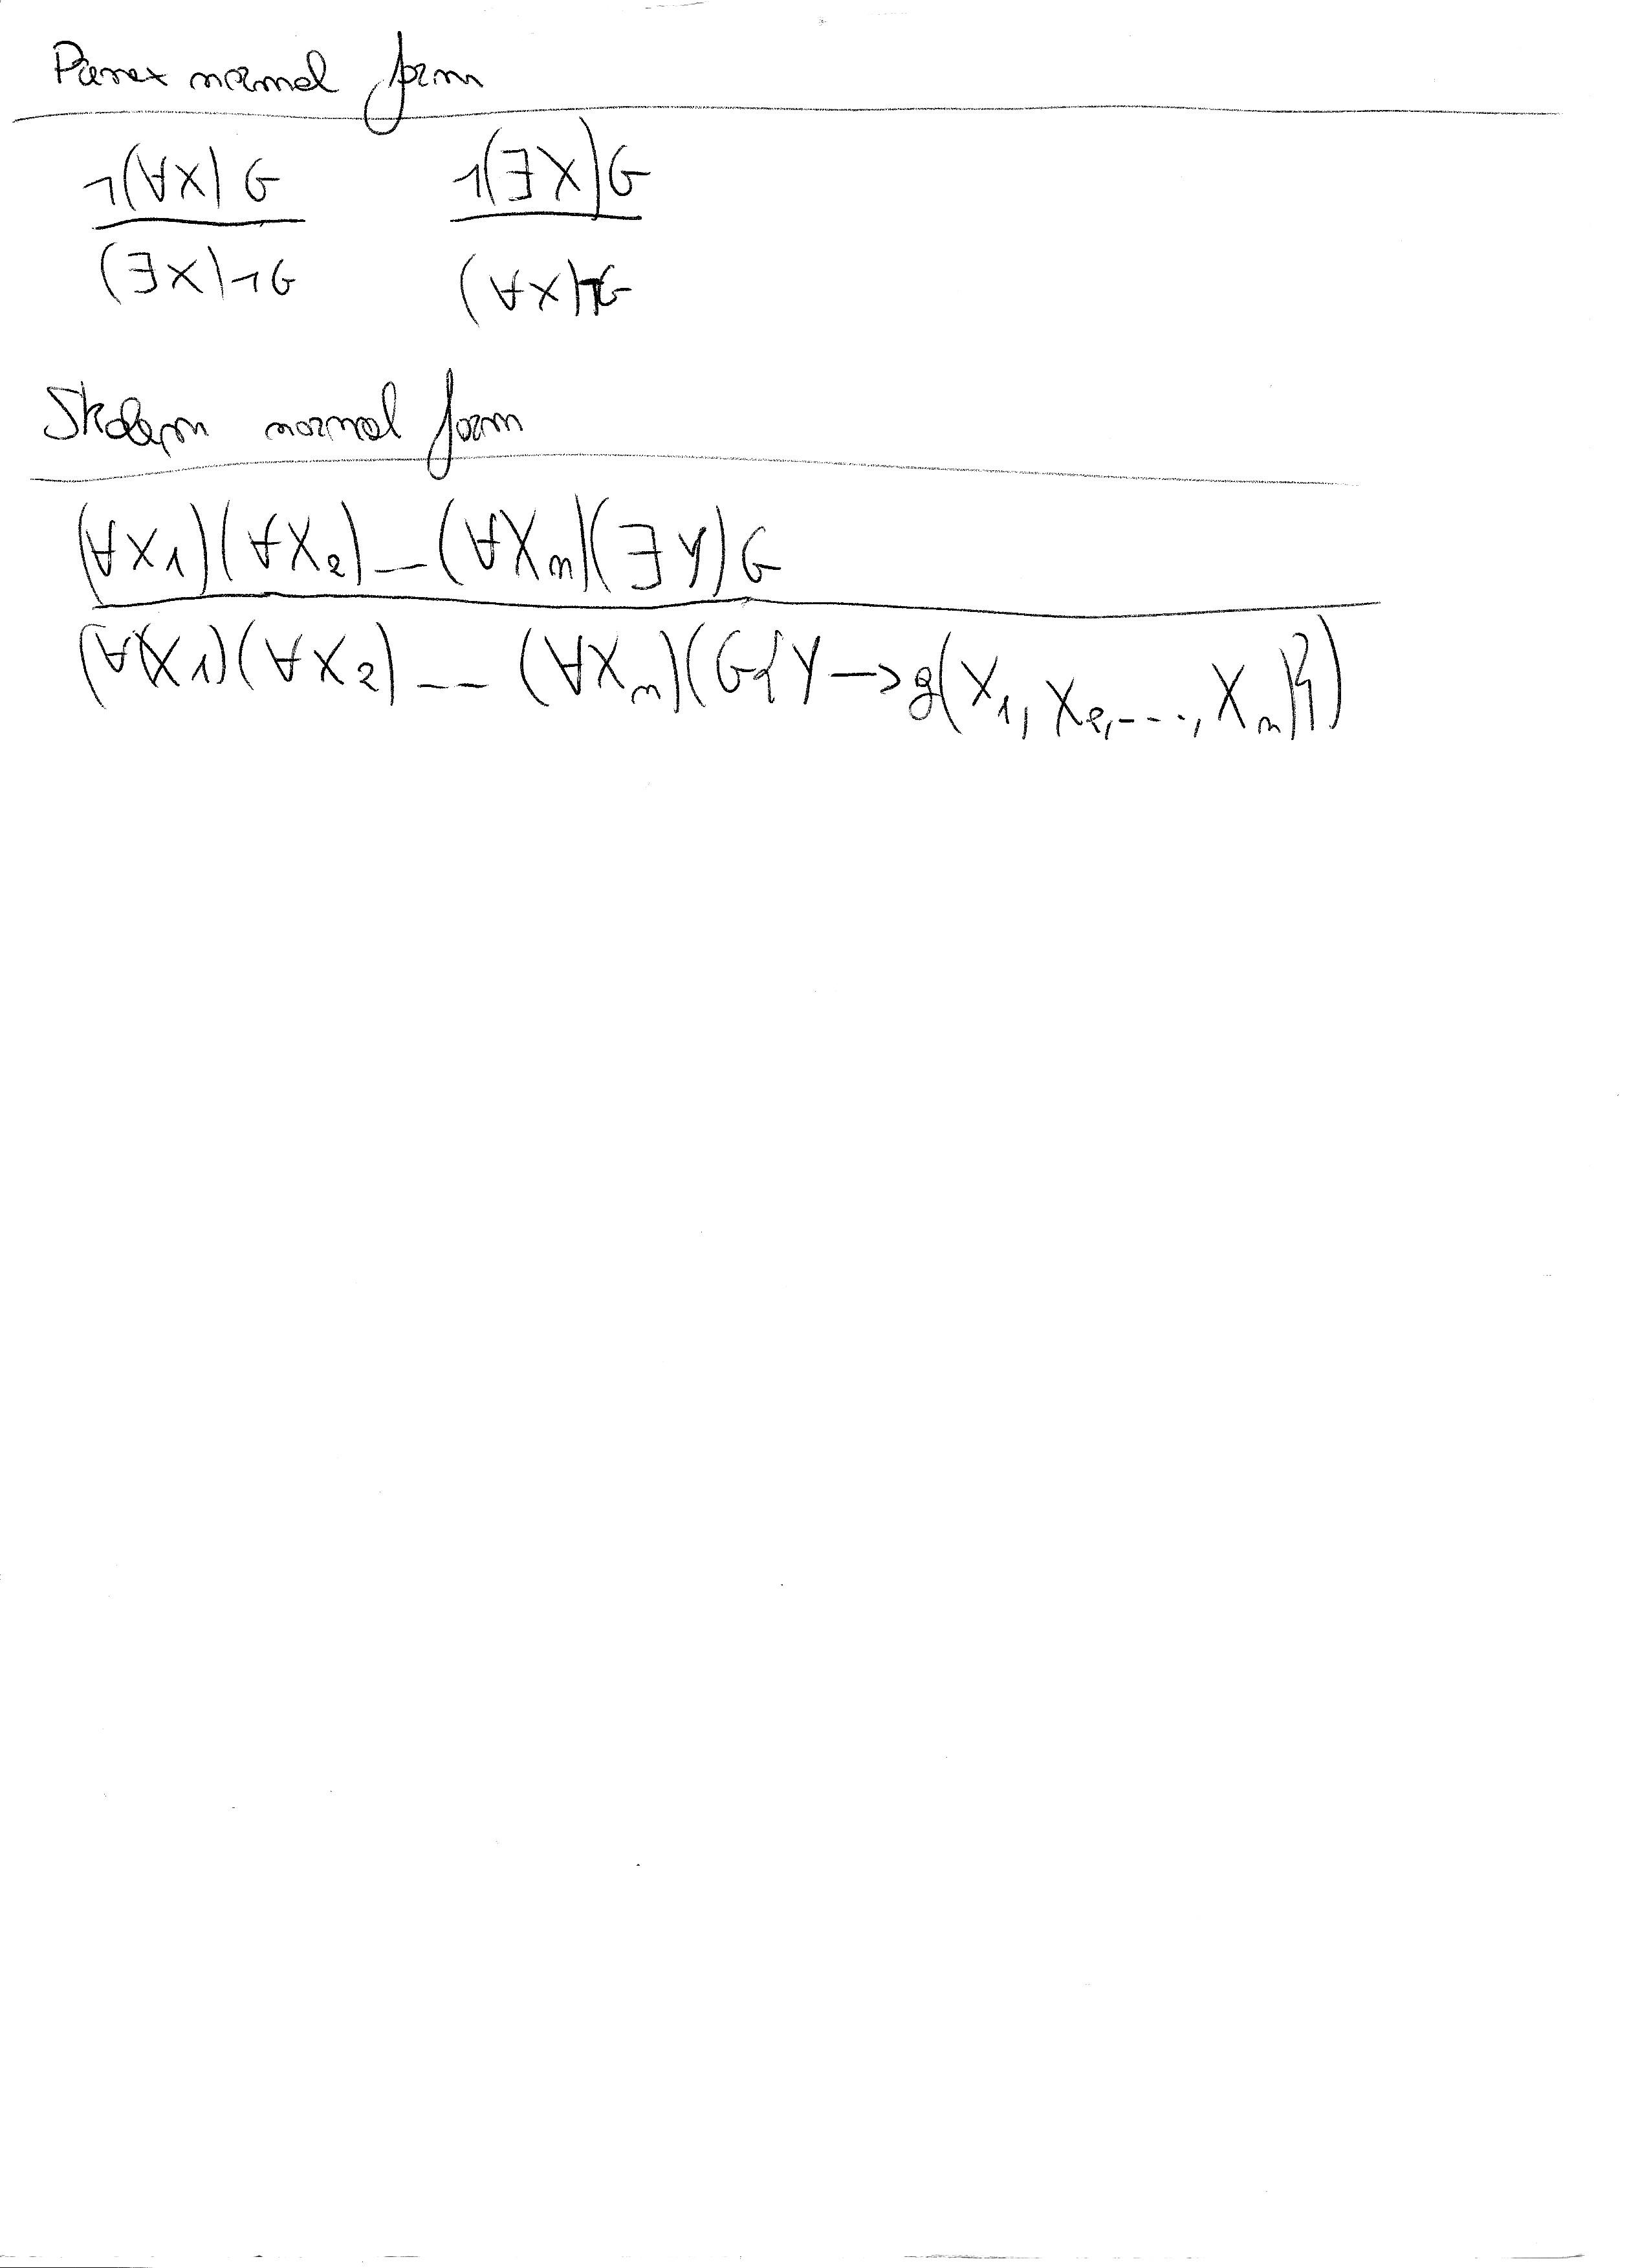 Prenex normal form
¬(∀X) G ¬(∃X)G
(∃X)¬G (∀X)¬G
Skolem normal form
(∀X₁)(∀X₂) — (∀Xₙ)(∃Y)G
(∀X₁)(∀X₂) -- (∀Xₙ)(G{Y→g(X₁, X₂,----, Xₙ)})